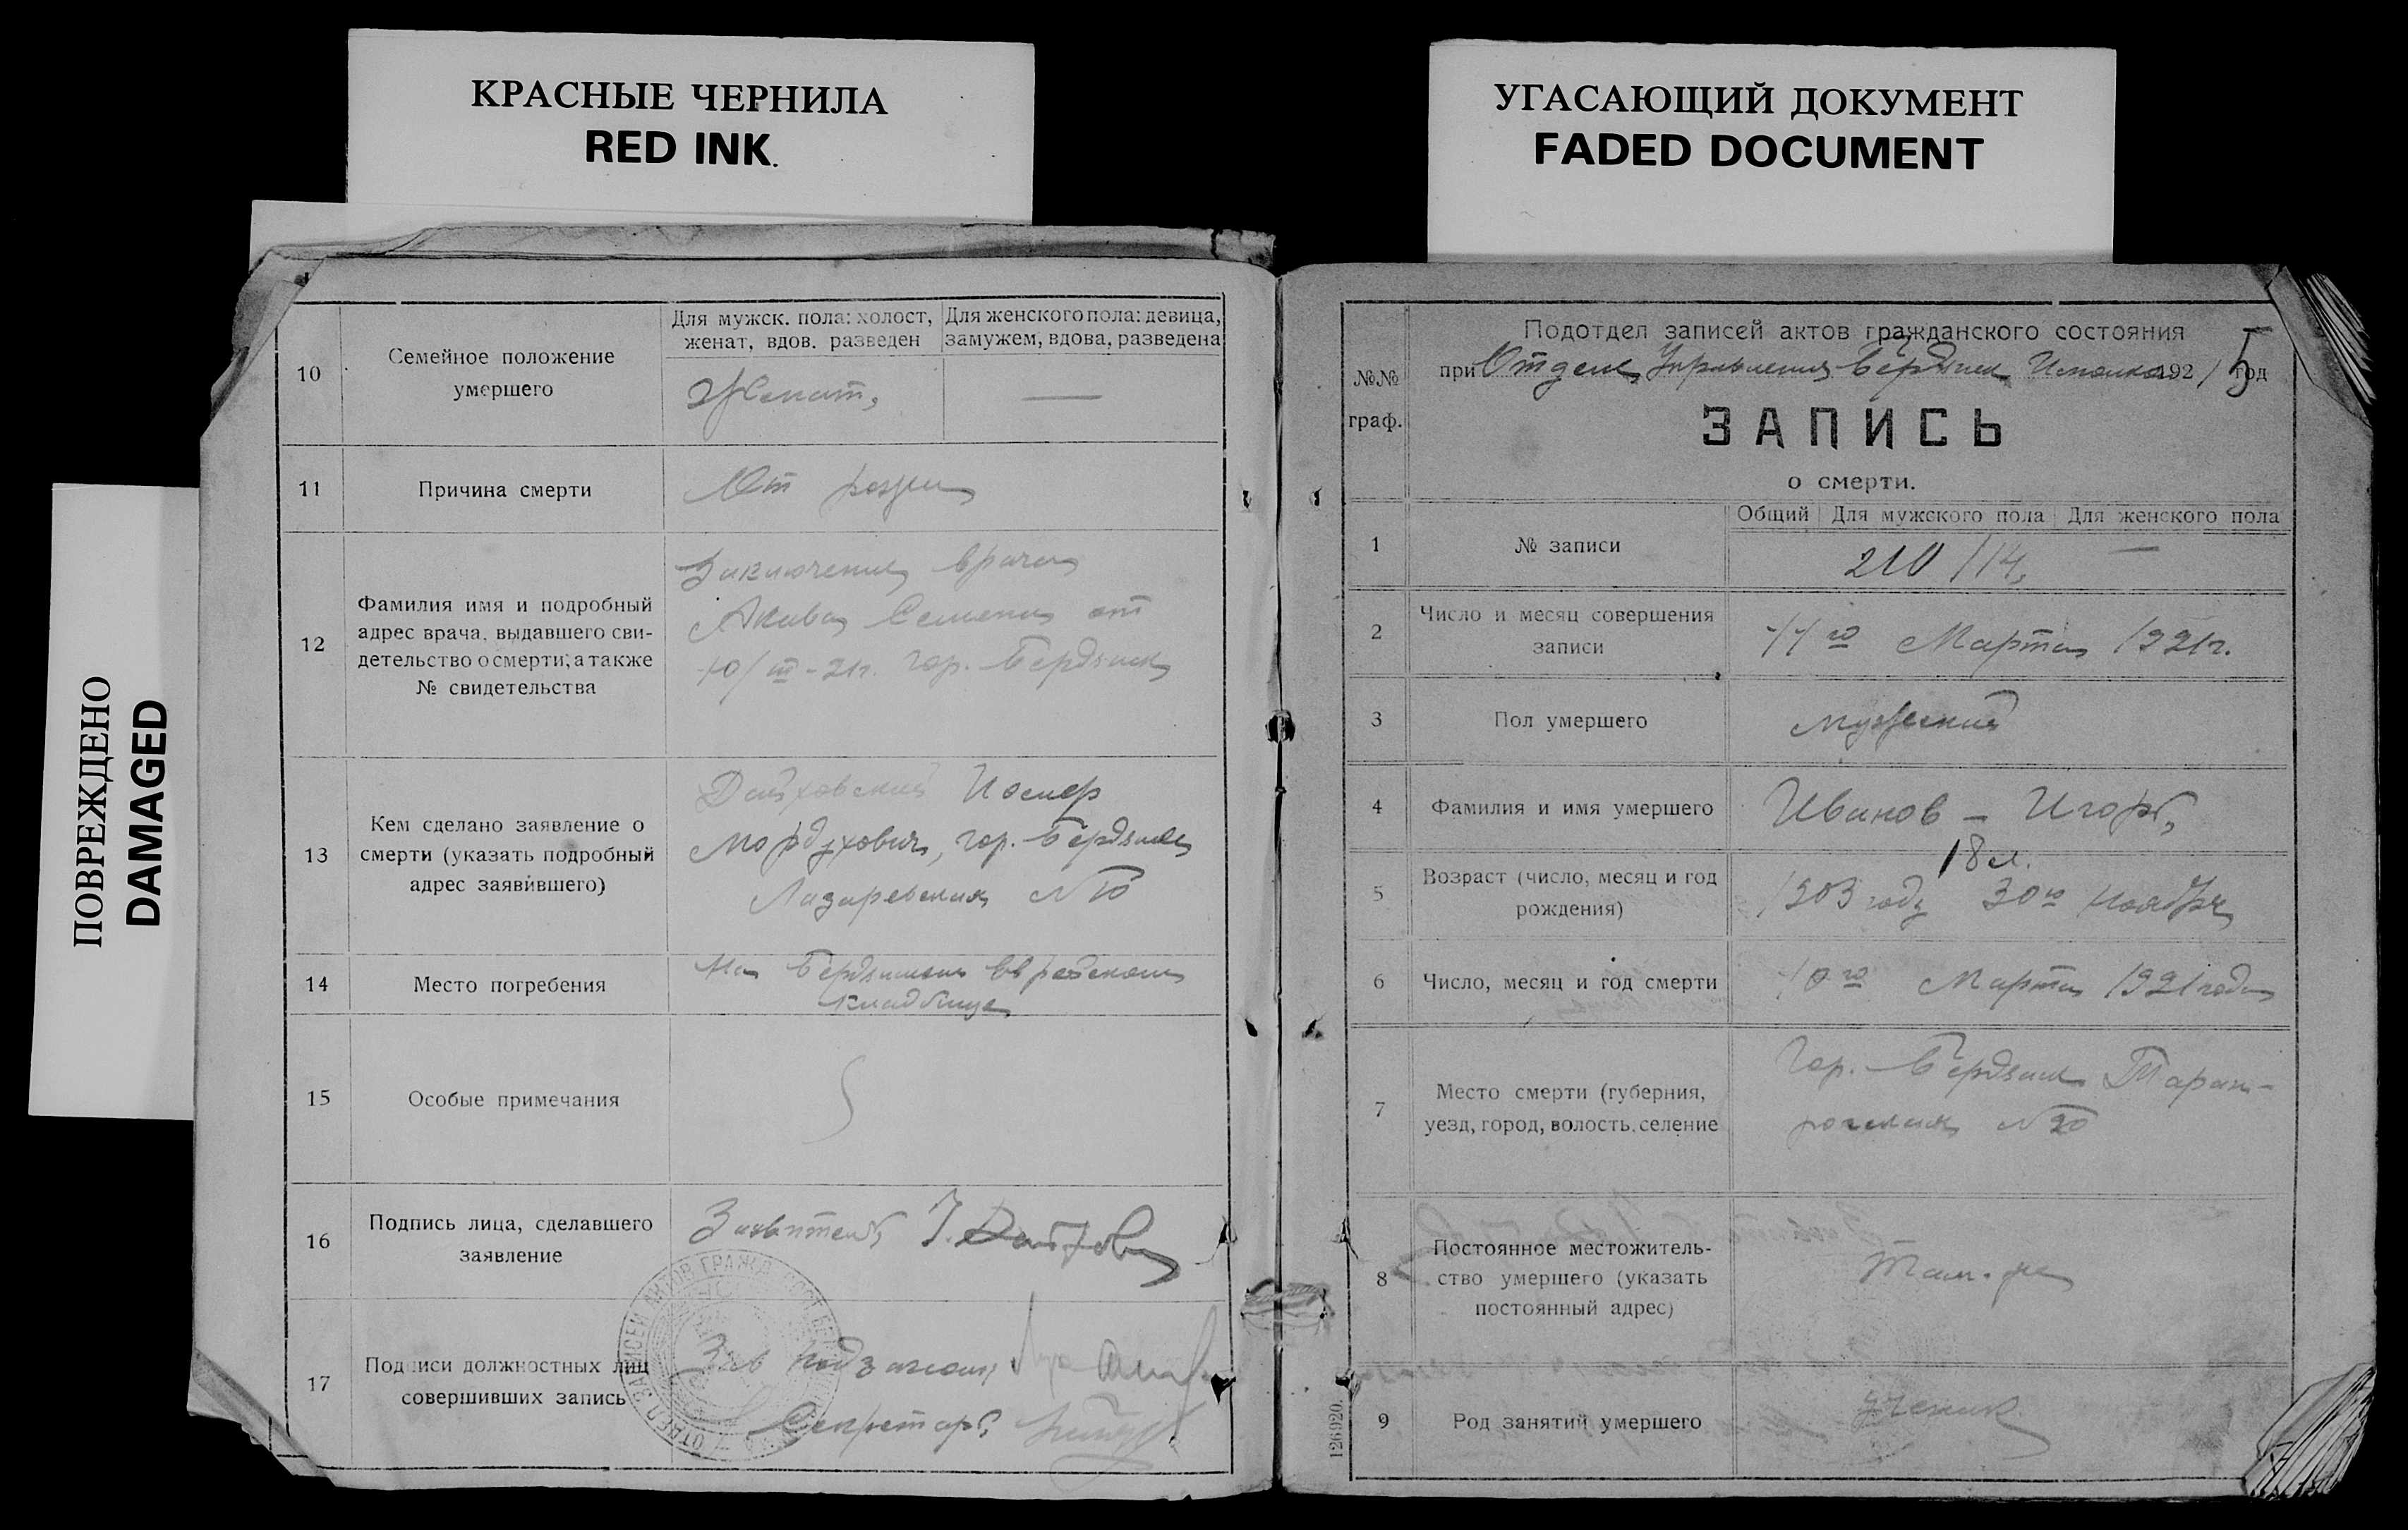 КРАСНЫЕ ЧЕРНИЛА
RED INK.
УГАСАЮЩИЙ ДОКУМЕНТ
FADED DOCUMENT
ПОВРЕЖДЕНО
DAMAGED
10
Семейное положение
умершего
Для мужск. пола: холост,
женат, вдов. разведен
Для женского пола: девица,
замужем, вдова, разведена
Женат,
—
11
Причина смерти
От рожи
12
Фамилия имя и подробный
адрес врача, выдавшего сви-
детельство о смерти, а также
№ свидетельства
Заключение врача
Акива от
10/III-21г. гор. Бердянск
13
Кем сделано заявление о
смерти (указать подробный
адрес заявившего)
Дайховский Иосиф
Мордухович, гор. Бердянск
Лазаревская №
14
Место погребения
На Бердянском Еврейском
кладбище
15
Особые примечания
16
Подпись лица, сделавшего
заявление
Заявитель
17
Подписи должностных лиц
совершивших запись
Зав
Секретарь
№№
граф.
Подотдел записей актов гражданского состояния
при Отделе Управления Бердянск Исполкома 1921 год
5
ЗАПИСЬ
о смерти.
1
№ записи
Общий
Для мужского пола
Для женского пола
210/114,
—
2
Число и месяц совершения
записи
11го Марта 1921г.
3
Пол умершего
мужеский
4
Фамилия и имя умершего
Иванов – Игорь,
5
Возраст (число, месяц и год
рождения)
18 л.
1903 году 30го Ноября
6
Число, месяц и год смерти
10го Марта 1921 года
7
Место смерти (губерния,
уезд, город, волость, селение
Гор. Бердянск Таган-
рогская №
8
Постоянное местожитель-
ство умершего (указать
постоянный адрес)
Там-же
9
Род занятий умершего
ученик
126920.